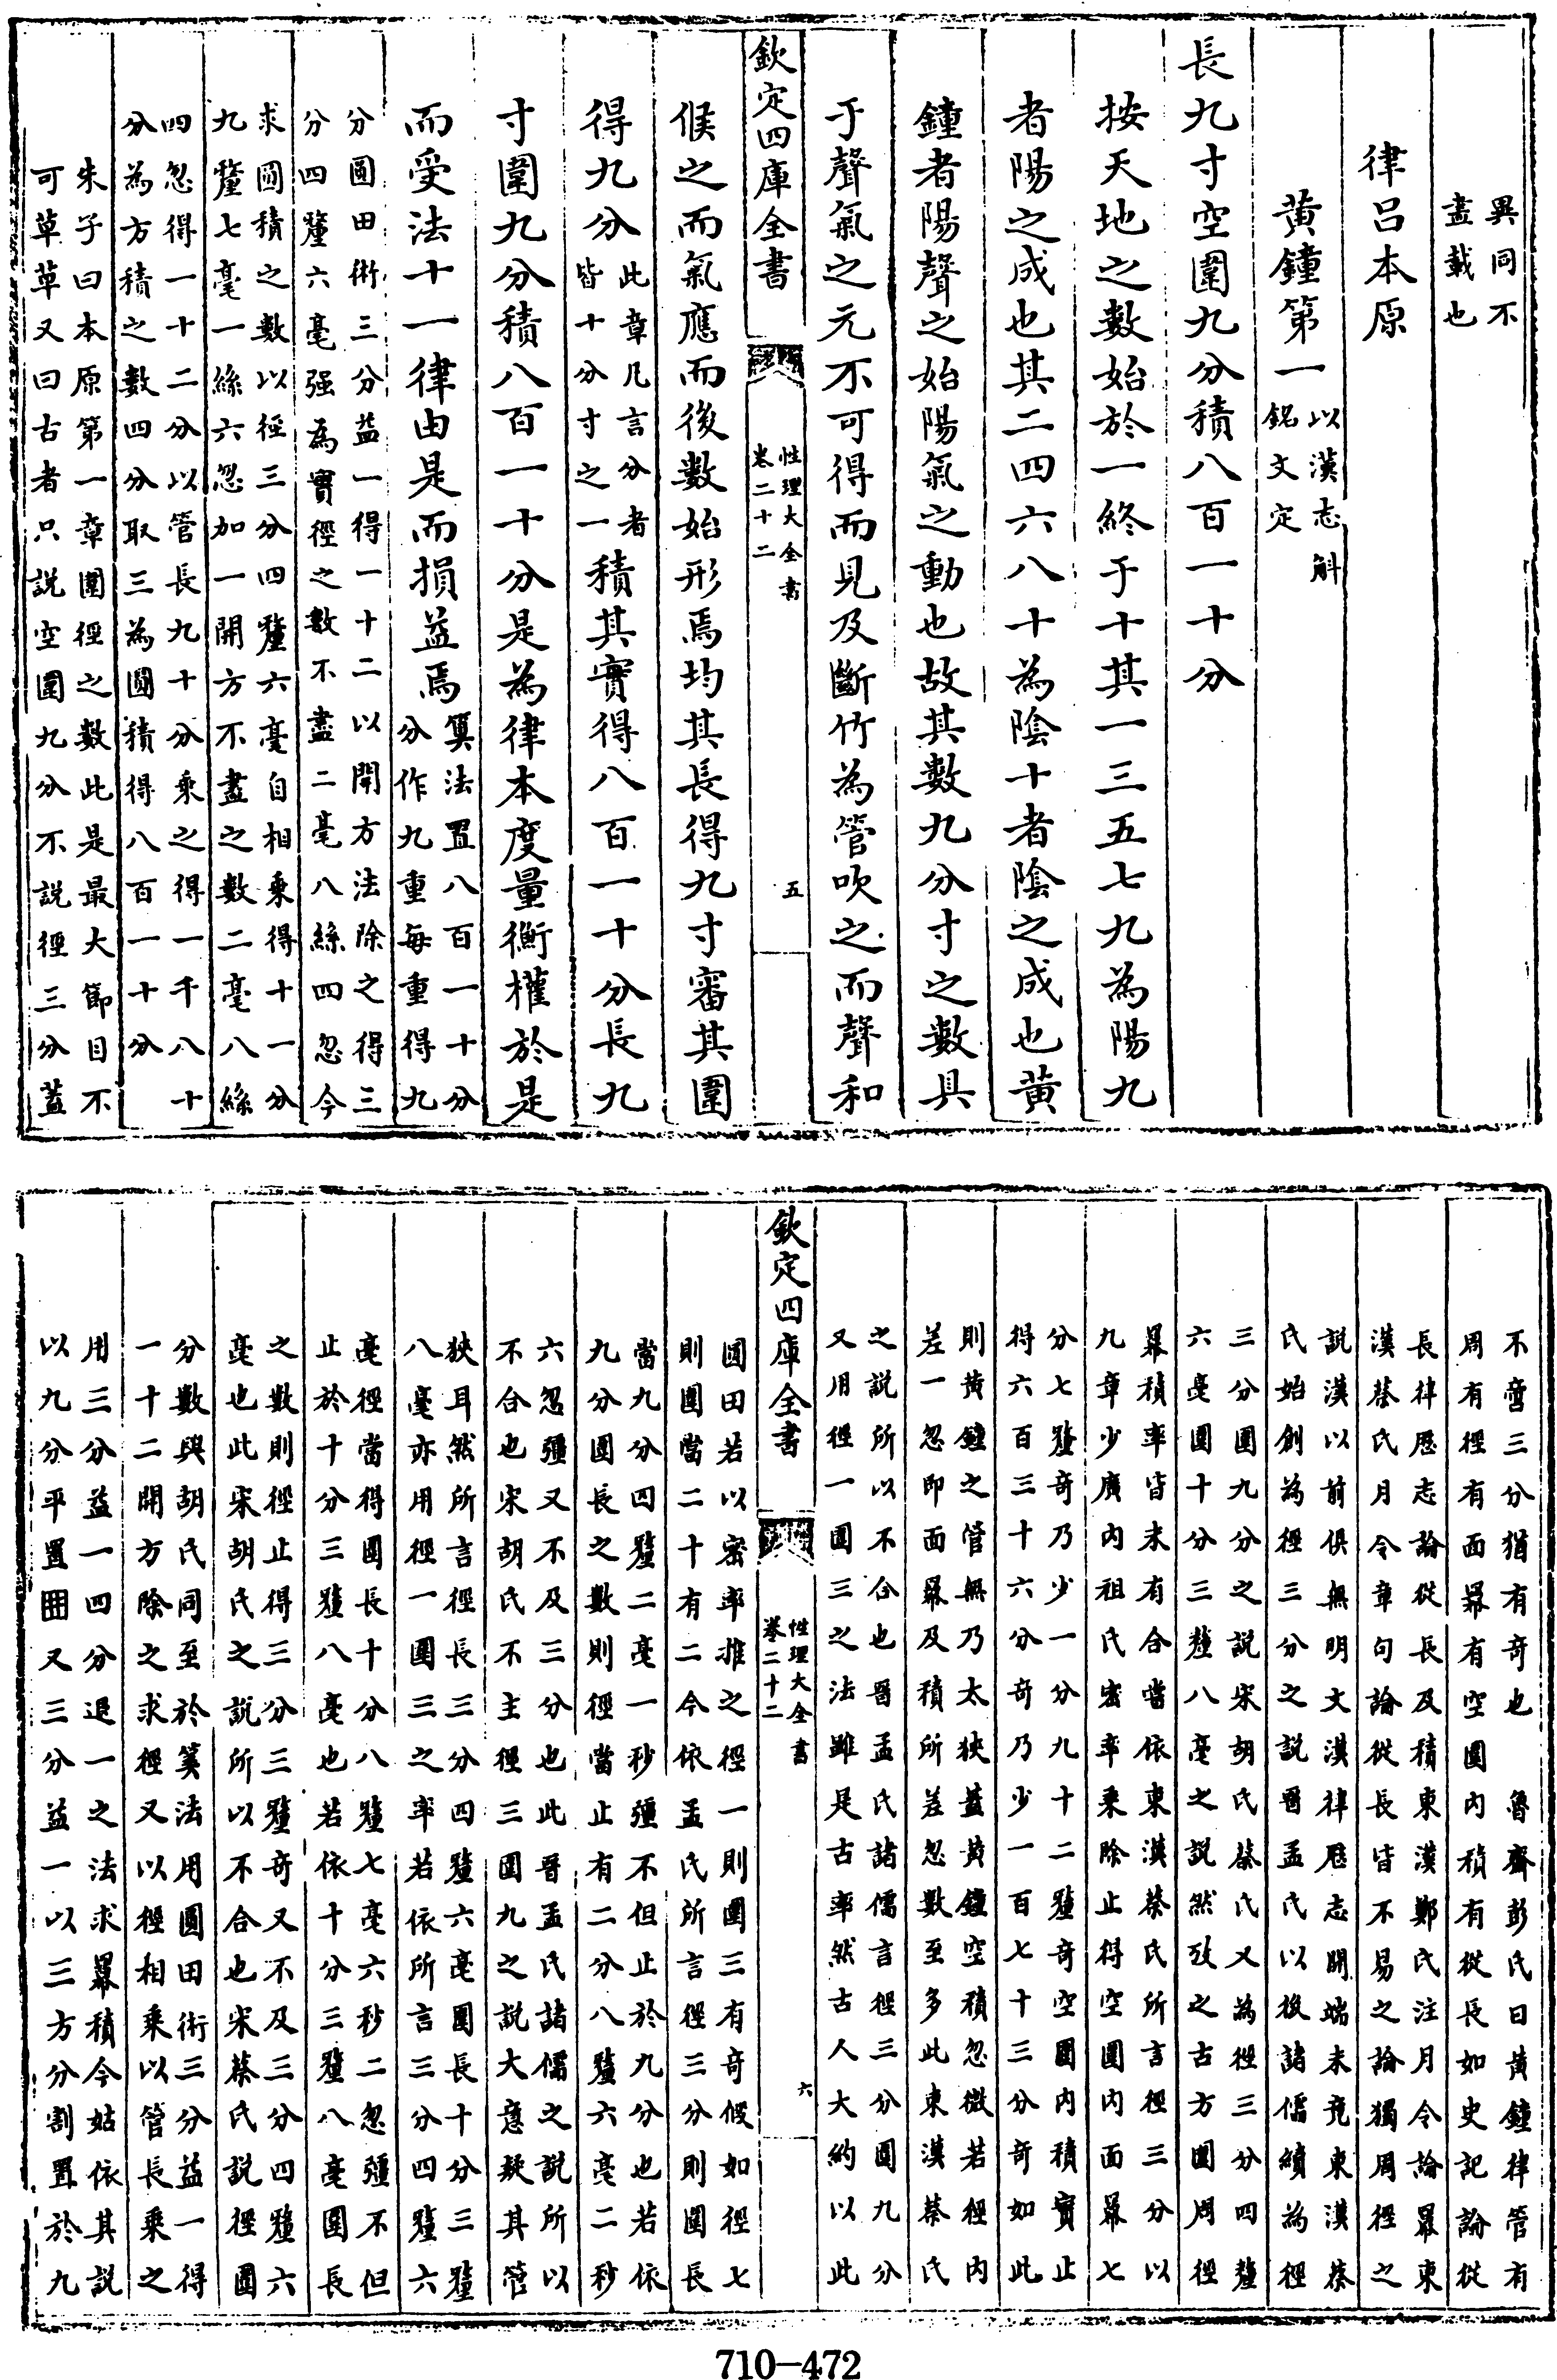 異同不
盡載也
律呂本原
黃鐘第一以漢志斛
銘文定
長九寸空圍九分積八百一十分
按天地之數始於一終于十其一三五七九為陽九
者陽之成也其二四六八十為陰十者陰之成也黃
鐘者陽聲之始陽氣之動也故其數九分寸之數具
于聲氣之元不可得而見及斷竹為管吹之而聲和
欽定四庫全書
性理大全書
卷二十二
五
候之而氣應而後數始形焉均其長得九寸審其圍
得九分此章凡言分者
皆十分寸之一積其實得八百一十分長九
寸圍九分積八百一十分是為律本度量衡權於是
而受法十一律由是而損益焉算法置八百一十分
分作九重每重得九
分圓田術三分益一得一十二以開方法除之得三
分四釐六毫强為實徑之數不盡二毫八絲四忽今
求圓積之數以徑三分四釐六毫自相乘得十一分
九釐七毫一絲六忽加一開方不盡之數二毫八絲
四忽得一十二分以管長九十分乘之得一千八十
分為方積之數四分取三為圓積得八百一十分
朱子曰本原第一章圍徑之數此是最大節目不
可草草又曰古者只說空圍九分不說徑三分蓋
不啻三分猶有奇也 魯齋彭氏曰黃鐘律管有
周有徑有面羃有空圍內積有從長如史記論從
長律歷志論從長及積東漢鄭氏注月令論羃東
漢蔡氏月令章句論從長皆不易之論獨周徑之
說漢以前俱無明文漢律歷志開端未竟東漢蔡
氏始創為徑三分之說晉孟氏以後諸儒續為徑
三分圓九分之說宋胡氏蔡氏又為徑三分四釐
六毫圓十分三釐八毫之說然攷之古方圓周徑
羃積率皆未有合當依東漢蔡氏所言徑三分以
九章少廣內祖氏密率乘除止得空圓內面羃七
分七釐奇乃少一分九十二釐奇空圓內積實止
得六百三十六分奇乃少一百七十三分奇如此
則黃鐘之管無乃太狹蓋黃鐘空積忽微若徑內
差一忽即面羃及積所差忽數至多此東漢蔡氏
之說所以不合也晉孟氏諸儒言徑三分圓九分
又用徑一圓三之法雖是古率然古人大約以此
欽定四庫全書
性理大全書
卷二十二
六
圓田若以密率推之徑一則圍三有奇假如徑七
則圍當二十有二今依孟氏所言徑三分則圍長
當九分四釐二毫一秒彊不但止於九分也若依
九分圓長之數則徑當止有二分八釐六毫二秒
六忽彊又不及三分也此晉孟氏諸儒之說所以
不合也宋胡氏不主徑三圓九之說大意疑其管
狹耳然所言徑長三分四釐六毫圓長十分三釐
八毫亦用徑一圍三之率若依所言三分四釐六
毫徑當得圓長十分八釐七毫六秒二忽彊不但
止於十分三釐八毫也若依十分三釐八毫圓長
之數則徑止得三分三釐奇又不及三分四釐六
毫也此宋胡氏之說所以不合也宋蔡氏說徑圓
分數與胡氏同至於筭法用圓田術三分益一得
一十二開方除之求徑又以徑相乘以管長乘之
用三分益一四分退一之法求羃積今姑依其說
以九分平置囲又三分益一以三方分割置於九
710-472